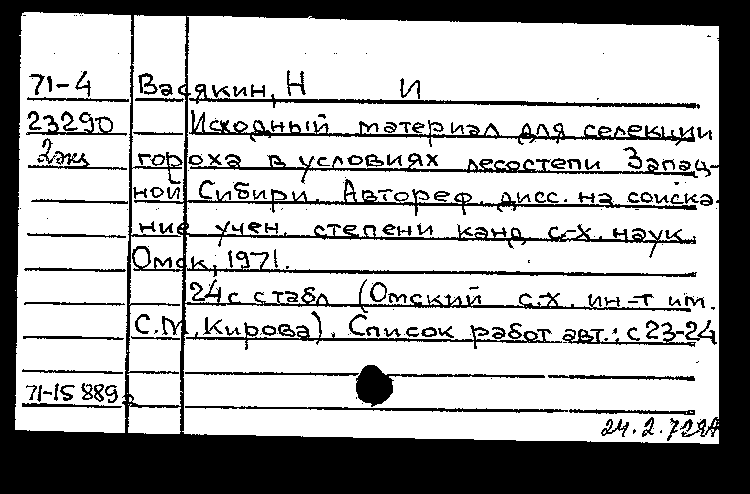 71-4 Васякин, Н И
23290 Исходный материал для селекции
2экз гороха в условиях лесостепи Запад-
ной Сибири. Автореф. дисс. на соиска-
ние учен. степени канд с.-х. наук.
Омск, 1971.
24с с табл (Омский с.-х. ин-т им.
С.М. Кирова). Список работ авт.: с 23-24
71-15889
24.2.72